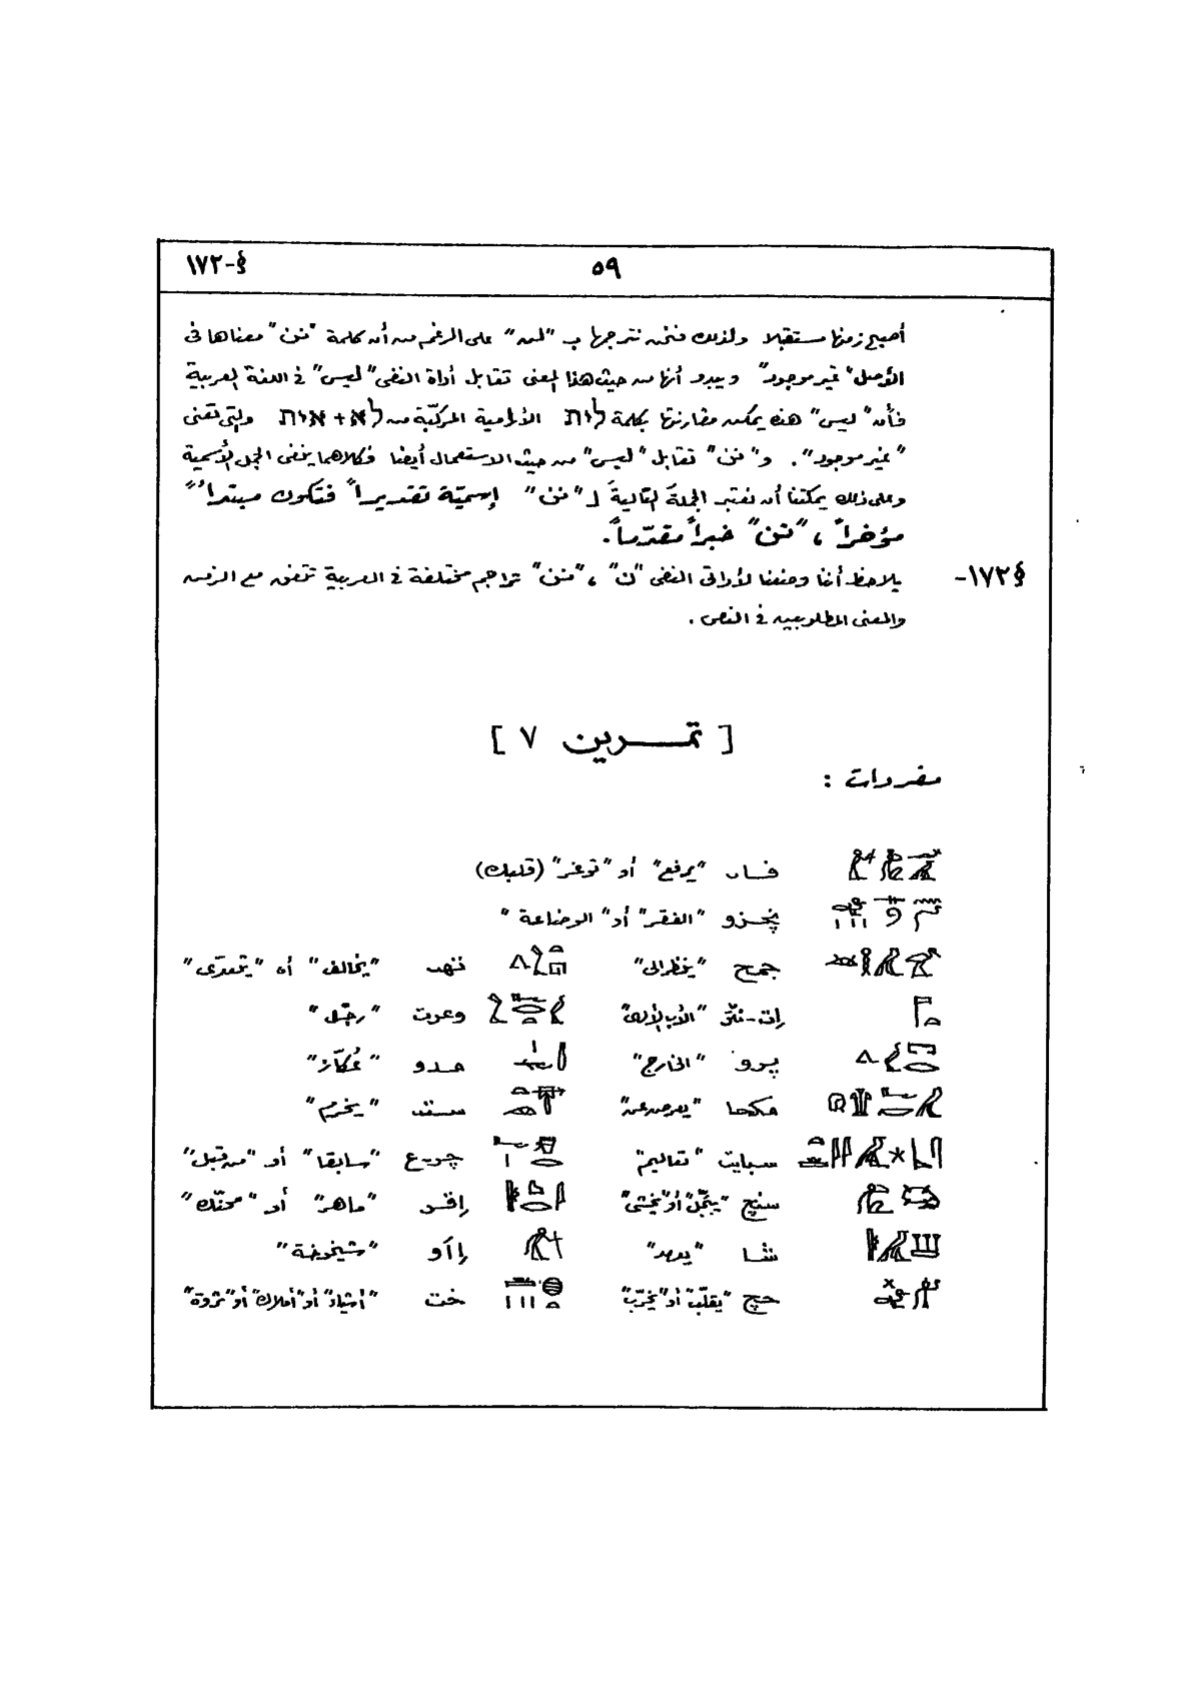 §-١٧٢
٥٩
أصبح زمنها مستقبلا ولذلك فنحن نترجمها بـ "لن" على الرغم من أن كلمة "نن" معناها فى
الأصل "غير موجود" ويبدو أنها من حيث هذا المعنى تقابل أداة النفى "ليس" فى اللغة العربية
فأن "ليس" هذه يمكن مقارنتها بكلمة לית الأرامية المركبّة من לא + אית والتى تعنى
"غير موجود". و"نن" تقابل "ليس" من حيث الاستعمال أيضا فكلاهما ينفى الجمل الأسمية
وعلى ذلك يمكننا أن نعتبر الجملةَ التاليةَ لـ "نن" إسميّة تقديراً فتكون مبتدأً
مؤخراً، "نن" خبراً مقدّماً.
§١٧٢- يلاحظ أننا وضعنا لأداتى النفى "ن"، "نن" تراجم مختلفة فى العربية تتفق مع الزمن
والمعنى المطلوبين فى النص.
[ تمـــرين ٧ ]
مفردات :
فـاى "يرفع" أو "توغر" (قلبك)
نچـزو "الفقر" أو "الوضاعة"
جمح "ينظر الى"
نهـ "يخالف" أو "يتعدى"
إت-نثر "الأب الألهى"
وعرت "رِجْل"
پرو "الخارج"
مدو "عُكّاز"
مكحا "يعرض عن"
ستت "يخرم"
سبايت "تعاليم"
چر-ع "سابقا" أو "من قبل"
سنچ "يبجّل" أو "يخشى"
إقر "ماهر" أو "محنّك"
شـا "يعهد"
إاَو "شيخوخة"
حچ "يقلّب" أو "يخرّب"
خت "أشياء" أو "أملاك" أو "ثروة"